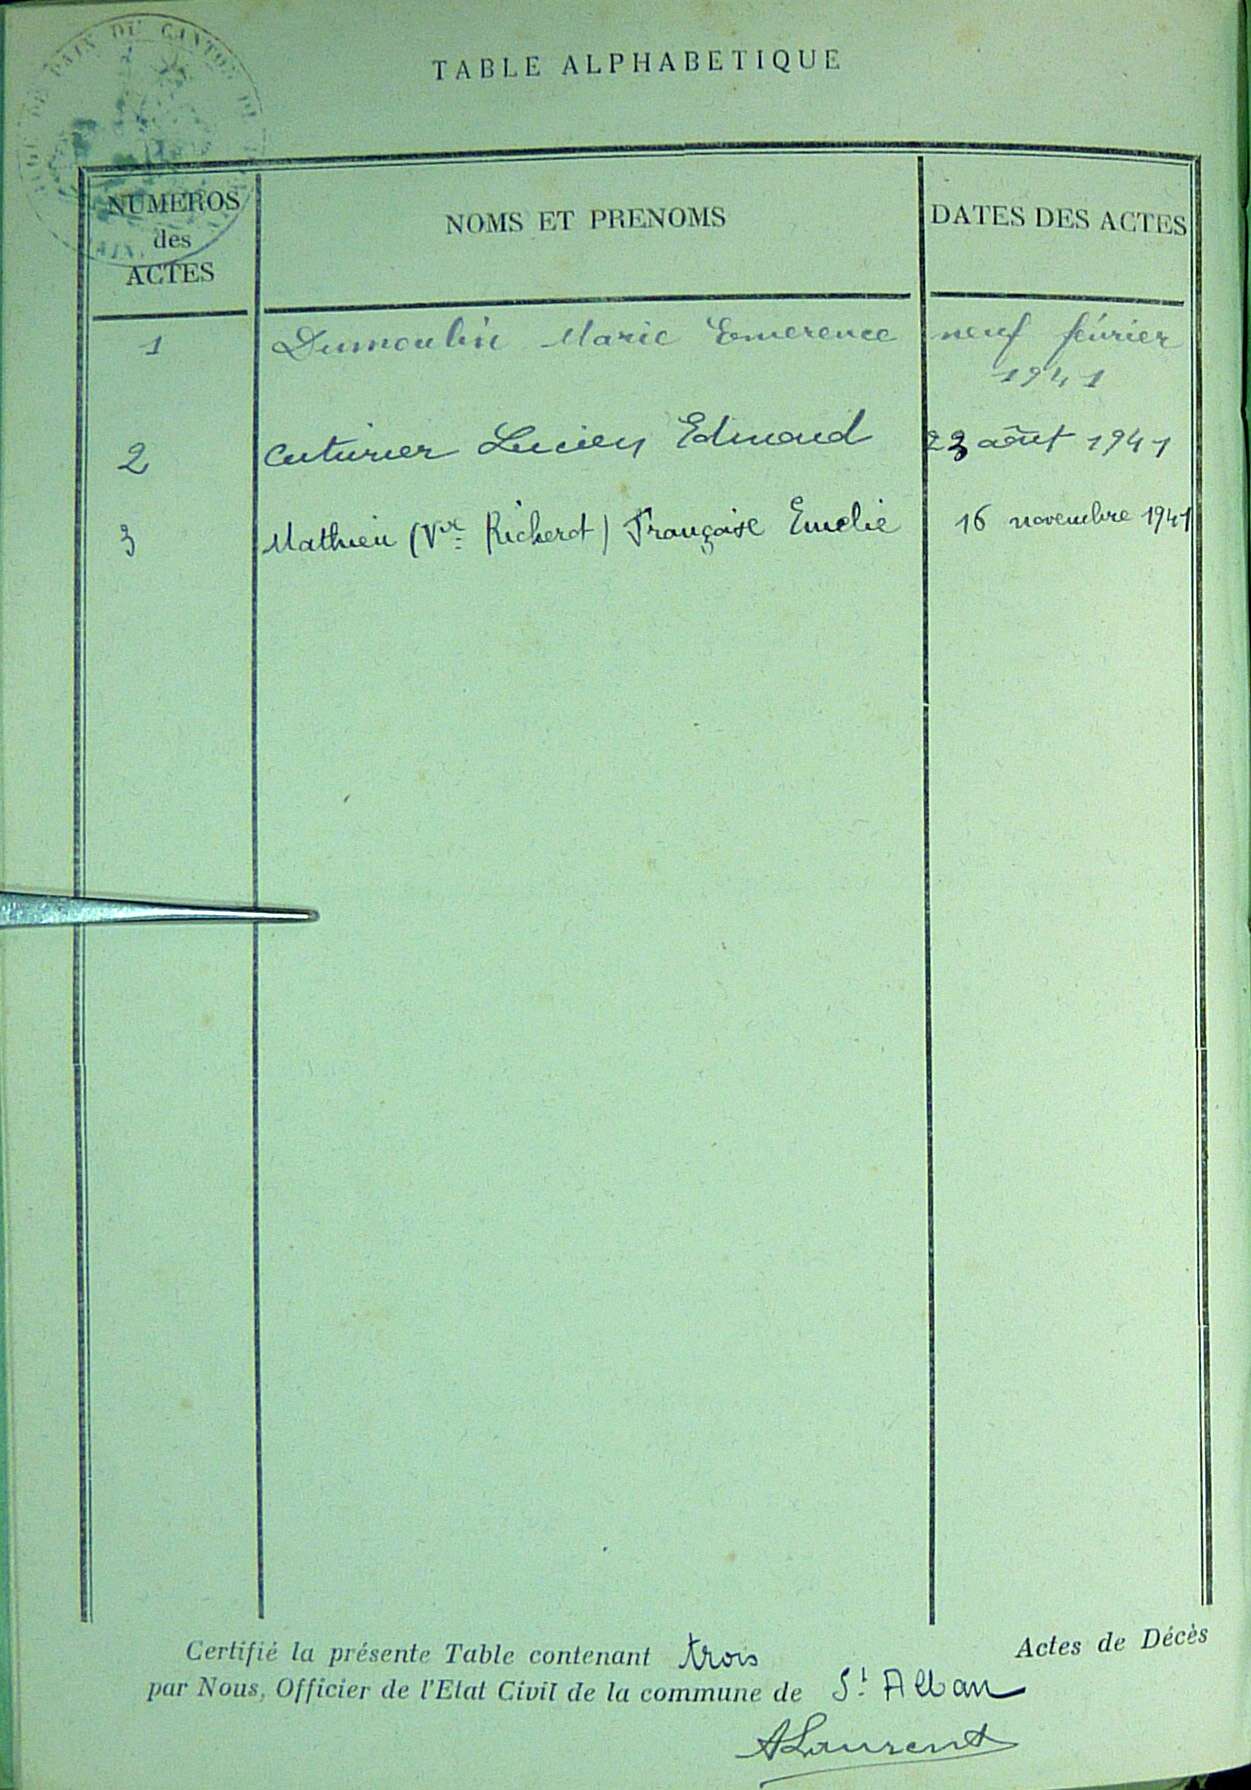 DE PAIX DU CANTON
TABLE ALPHABETIQUE
NUMEROS
des
ACTES
NOMS ET PRENOMS
DATES DES ACTES
AIN
1 Dumoulin Marie Emerence neuf février
1941
2 Cuturier Lucien Edmond 23 août 1941
3 Mathieu (Vve Richerot) Françoise Emelie 16 novembre 1941
Certifié la présente Table contenant trois Actes de Décès
par Nous, Officier de l'Etat Civil de la commune de St Alban
ALaurent